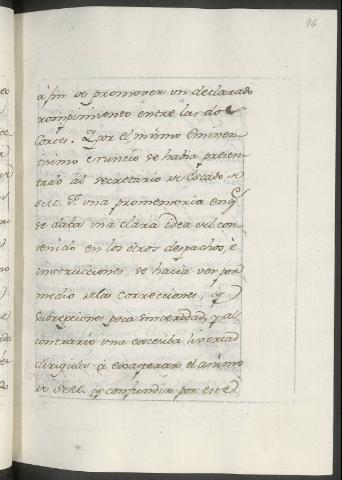 96
à fin de promover un declarado
rompimiento entre las dos
Cortes. Que por el mismo Eminen-
tisimo Nuncio se habia presen-
tado al secretario de Estado de
S. M. F. una promemoria en que
se daba una clara idea del con-
tenido en los otros despachos, è
instrucciones, se hacia ver por
medio de las correcciones, y
subrepciones poca sinceridad, y al
contrario una excesiba livertad
dirigida à exasperar el animo
de S. M. y confundir por este